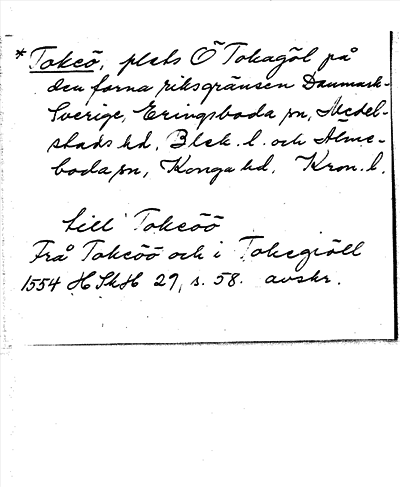 * Tokeö, plats Ö Tokagöl på
den forna riksgränsen Danmark-
Sverige, Eringsboda sn, Medel-
stads hd, Blek. l. och Älme-
boda sn, Konga hd, Kron. l.
till Tokeöö
Frå Tokeöö och i Tokegiöll
1554 HSkH 29, s. 58. avskr.